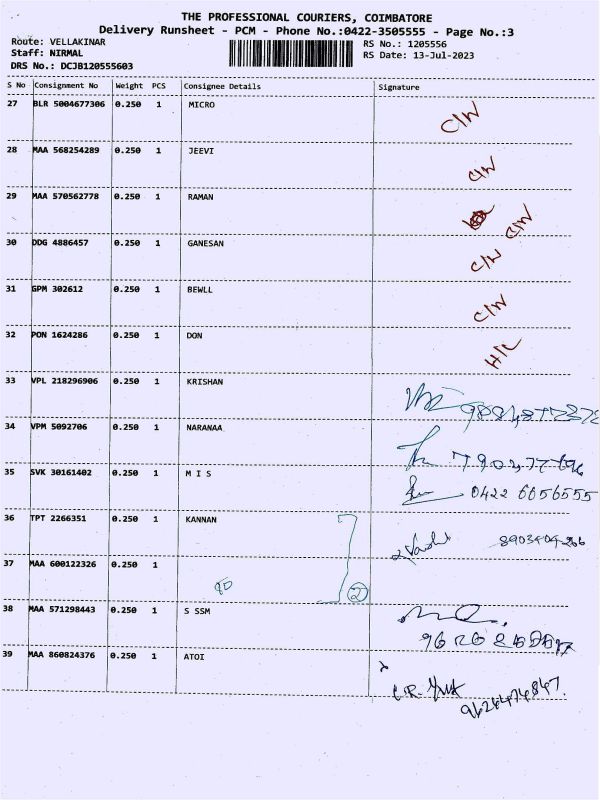 THE PROFESSIONAL COURIERS, COIMBATORE
Delivery Runsheet - PCM - Phone No.:0422-3505555 - Page No.:3
Route: VELLAKINAR
Staff: NIRMAL
DRS No.: DCJB120555603
RS No.: 1205556
RS Date: 13-Jul-2023
S No Consignment No Weight PCS Consignee Details Signature
27 BLR 5004677306 0.250 1 MICRO C/W
28 MAA 568254289 0.250 1 JEEVI C/W
29 MAA 570562778 0.250 1 RAMAN C/W
30 DDG 4886457 0.250 1 GANESAN C/W
31 GPM 302612 0.250 1 BEWLL C/W
32 PON 1624286 0.250 1 DON H/L
33 VPL 218296906 0.250 1 KRISHAN
34 VPM 5092706 0.250 1 NARANAA
35 SVK 30161402 0.250 1 M I S 0422 6656555
36 TPT 2266351 0.250 1 KANNAN
37 MAA 600122326 0.250 1 2
38 MAA 571298443 0.250 1 S SSM
39 MAA 860824376 0.250 1 ATOI